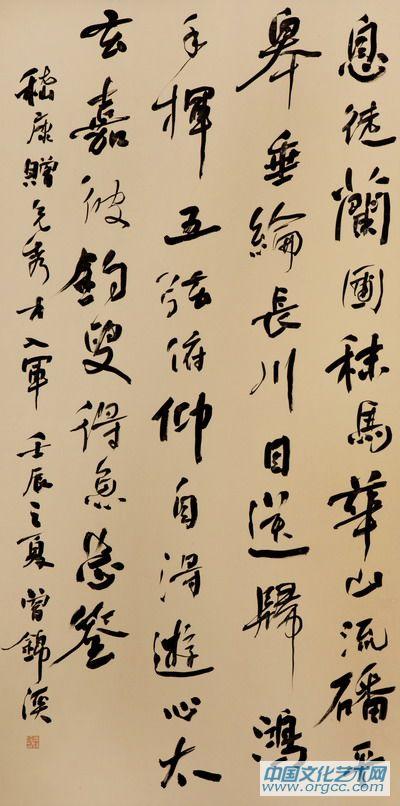 息徒蘭圃秣馬華山流磻平
皋垂綸長川目送歸鴻
手揮五弦俯仰自得遊心太
玄嘉彼釣叟得魚忘筌
嵇康贈兄秀才入軍 壬辰之夏 曾錦溪
中国文化艺术网
www.orgcc.com